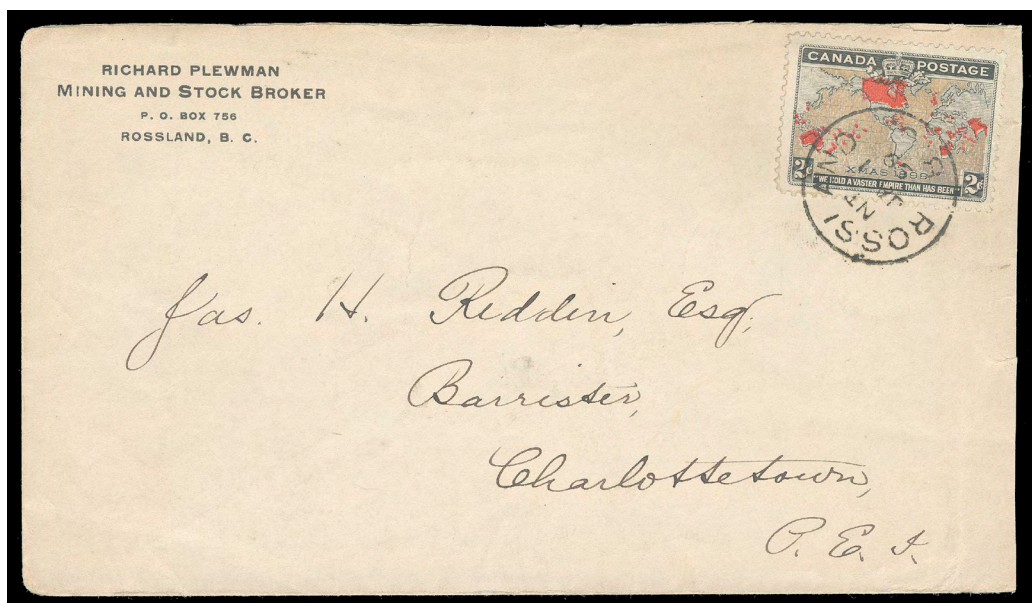 RICHARD PLEWMAN
MINING AND STOCK BROKER
P. O. BOX 756
ROSSLAND, B. C.
CANADA POSTAGE
XMAS 1898
2c "WE HOLD A VASTER EMPIRE THAN HAS BEEN" 2c
ROSSLAND
Jas. H. Reddin, Esq.,
Barrister,
Charlottetown,
P. E. I.